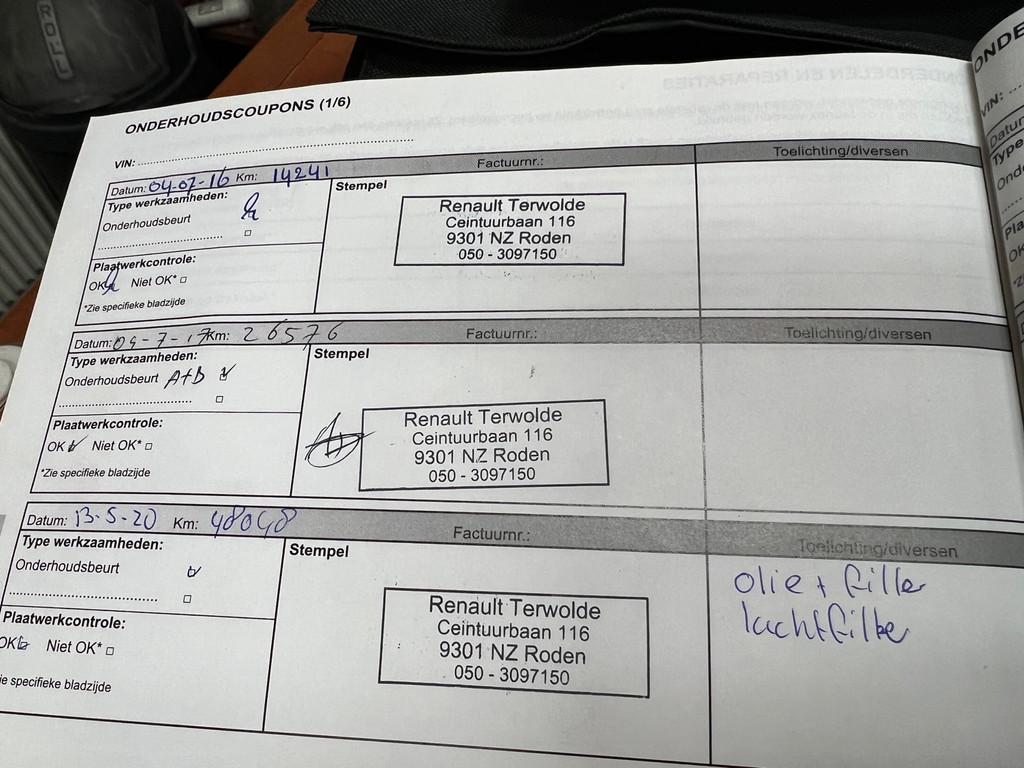 ONDERHOUDSCOUPONS (1/6)
VIN:
Datum: 04-07-16 Km: 14241 Factuurnr.: Toelichting/diversen
Type werkzaamheden:
Stempel
Onderhoudsbeurt
Renault Terwolde
Ceintuurbaan 116
9301 NZ Roden
050 - 3097150
Plaatwerkcontrole:
OK Niet OK*
*Zie specifieke bladzijde
Datum: 09-7-17 Km: 26576 Factuurnr.: Toelichting/diversen
Type werkzaamheden:
Stempel
Onderhoudsbeurt A+B
Renault Terwolde
Ceintuurbaan 116
9301 NZ Roden
050 - 3097150
Plaatwerkcontrole:
OK Niet OK*
*Zie specifieke bladzijde
Datum: 13-5-20 Km: 48048 Factuurnr.: Toelichting/diversen
Type werkzaamheden:
Stempel
Onderhoudsbeurt
Renault Terwolde
Ceintuurbaan 116
9301 NZ Roden
050 - 3097150
olie + filter
luchtfilter
Plaatwerkcontrole:
OK Niet OK*
specifieke bladzijde
VIN: